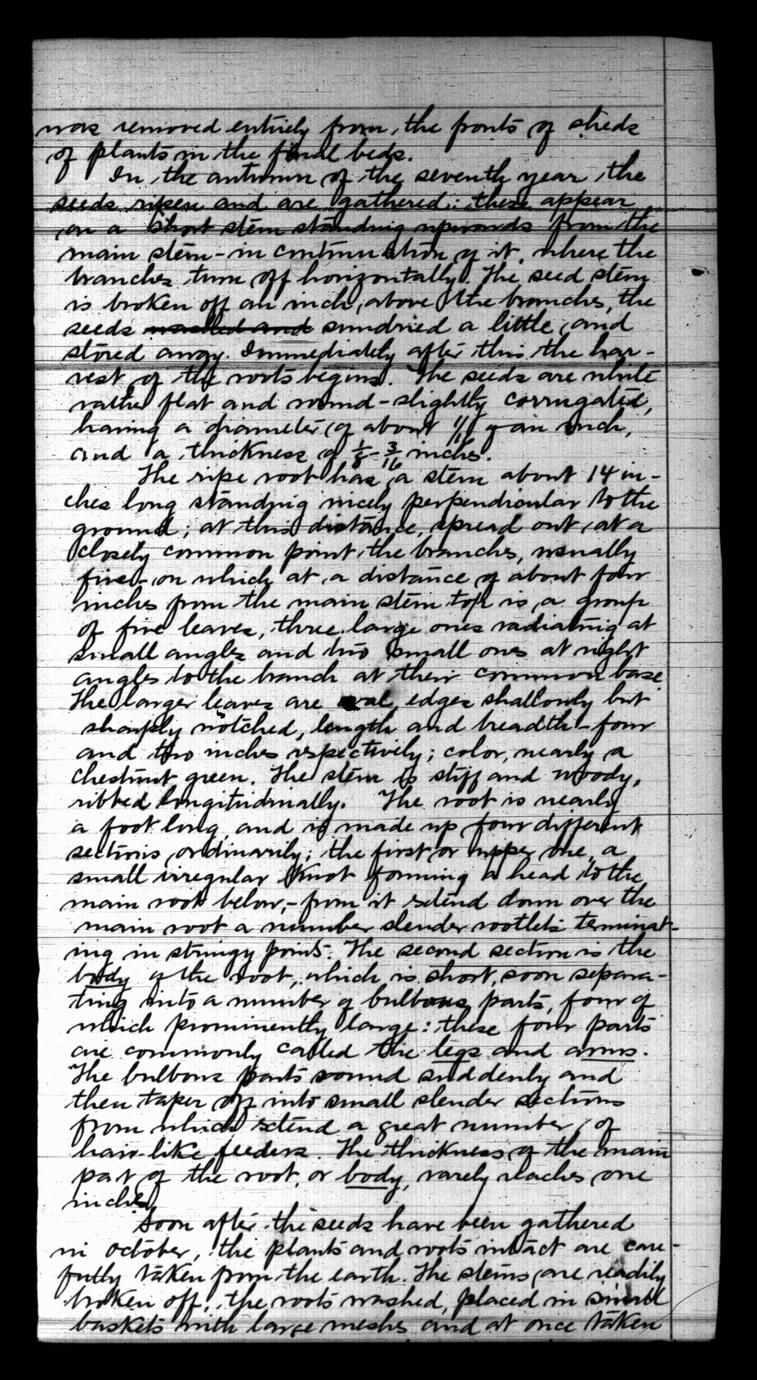 was removed entirely from the fronts of sheds
of plants in the final beds.
In the autumn of the seventh year the
seeds ripen and are gathered: these appear
on a short stem standing upwards from the
main stem - in continuation of it, where the
branches turn off horizontally. The seed stem
is broken off an inch above the branches, the
seeds washed and sundried a little, and
stored away. Immediately after this the har-
vest of the roots begins. The seeds are white
rather flat and round - slightly corrugated,
having a diameter of about of an inch,
and a thickness of 1/8 - 3/16 inches.
The ripe root has a stem about 14 in-
ches long standing nicely perpendicular to the
ground; at this distance, spread out at a
closely common point the branches, usually
five - on which at a distance of about four
inches from the main stem top is a group
of five leaves, three large ones radiating at
small angles and two small ones at right
angles to the branch at their common base
The larger leaves are oval, edges shallowly but
sharply notched, length and breadth - four
and two inches respectively; color, nearly a
chestnut green. The stem is stiff and woody,
ribbed longitudinally. The root is nearly
a foot long and is made up four different
sections, ordinarily; the first or upper one, a
small irregular knot forming a head to the
main root below, - from it extend down over the
main root a number slender rootlets terminat-
ing in stringy points. The second section is the
body of the root, which is short, soon separa-
ting into a number of bulbous parts, four of
which prominently large: these four parts
are commonly called the legs and arms.
The bulbous parts round suddenly and
then taper off into small slender sections
from which extend a great number of
hair-like feeders. The thickness of the main
part of the root, or body, rarely reaches one
inch.
Soon after the seeds have been gathered
in october, the plants and roots intact are care-
fully taken from the earth. The stems are readily
broken off, the roots washed, placed in small
baskets with large meshes and at once taken